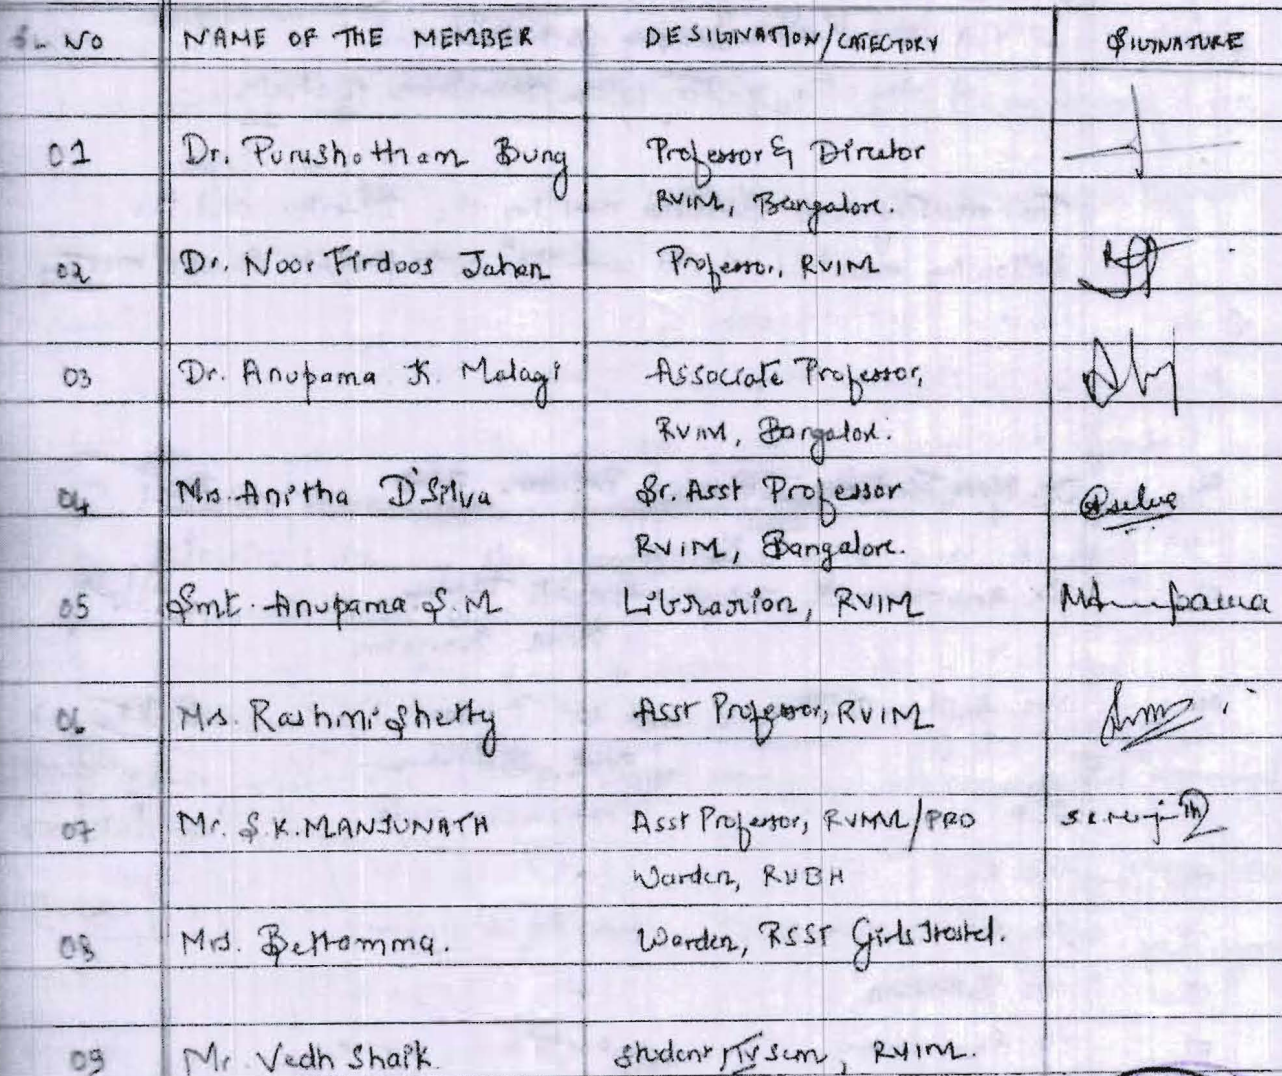 Sl. NO NAME OF THE MEMBER DESIGNATION/CATEGORY SIGNATURE
01 Dr. Purushotham Bung Professor & Director
RVIM, Bangalore.
02 Dr. Noor Firdoos Jahan Professor, RVIM
03 Dr. Anupama K. Malagi Associate Professor,
RVIM, Bangalore.
04 Mrs. Anitha D'Silva Sr. Asst Professor
RVIM, Bangalore.
05 Smt. Anupama S.M Librarian, RVIM MAnupama
06 Ms. Rashmi Shetty Asst Professor, RVIM
07 Mr. S.K. MANJUNATH Asst Professor, RVIM/PRO
Warden, RVBH
08 Mrs. Bettamma. Warden, RSST Girls Hostel.
09 Mr. Vedh Shaik student IV sem, RVIM.